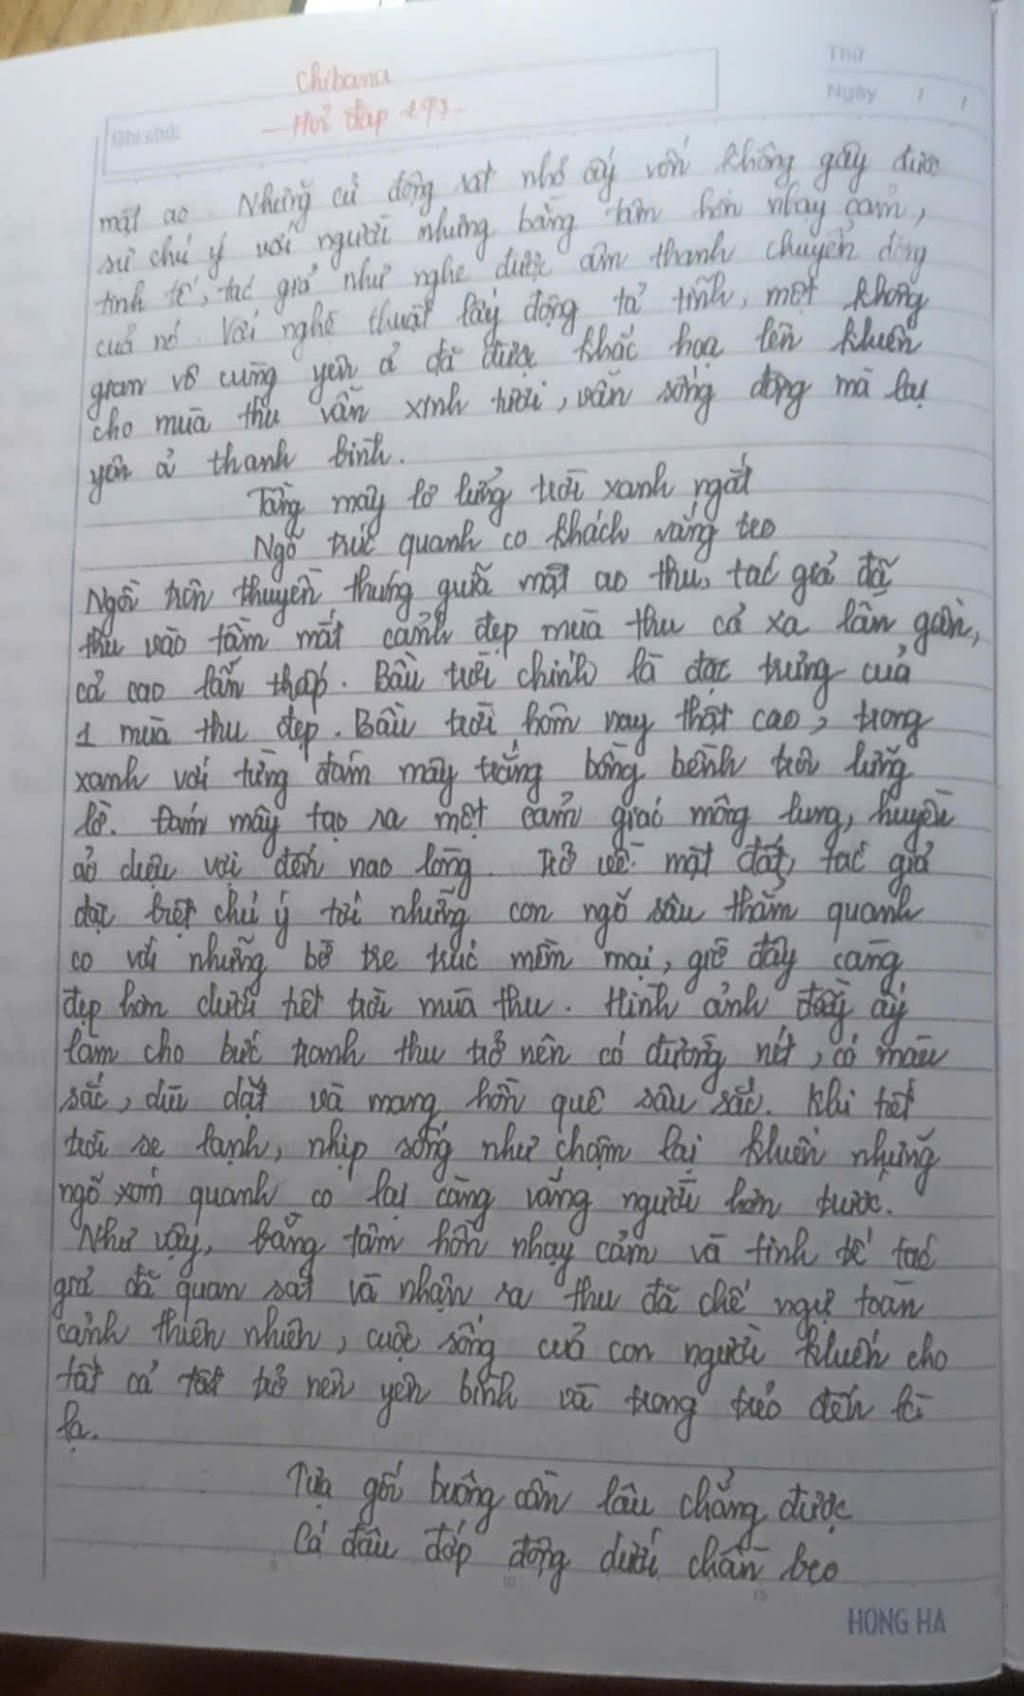 Chibana
- Hỏi đáp 247 -
Thứ
Ngày / /
Ghi chú:
mặt ao. Những cử động rất nhỏ ấy vốn không gây được
sự chú ý với người nhưng bằng tâm hồn nhạy cảm,
tinh tế, tác giả như nghe được âm thanh chuyển động
của nó. Với nghệ thuật lấy động tả tĩnh, một không
gian vô cùng yên ả đã được khắc họa lên khiến
cho mùa thu vẫn xinh tươi, vẫn sống động mà lại
yên ả thanh bình.
Tầng mây lơ lửng trời xanh ngắt
Ngõ trúc quanh co khách vắng teo
Ngồi trên thuyền thung giữa mặt ao thu, tác giả đã
thu vào tầm mắt cảnh đẹp mùa thu cả xa lẫn gần,
cả cao lẫn thấp. Bầu trời chính là đặc trưng của
1 mùa thu đẹp. Bầu trời hôm nay thật cao, trong
xanh với từng đám mây trắng bồng bềnh trôi lững
lờ. Đám mây tạo ra một cảm giác mông lung, huyền
ảo diệu vợi đến nao lòng. Trở về mặt đất, tác giả
đặc biệt chú ý tới những con ngõ sâu thẳm quanh
co với những bờ tre trúc mềm mại, giờ đây càng
đẹp hơn dưới tiết trời mùa thu. Hình ảnh đầy ấy
làm cho bức tranh thu trở nên có đường nét, có màu
sắc, dìu dặt và mang hồn quê sâu sắc. Khi tiết
trời se lạnh, nhịp sống như chậm lại khiến những
ngõ xóm quanh co lại càng vắng người hơn trước.
Như vậy, bằng tâm hồn nhạy cảm và tinh tế tác
giả đã quan sát và nhận ra thu đã chế ngự toàn
cảnh thiên nhiên, cuộc sống của con người khiến cho
tất cả trở nên yên bình và trong trẻo đến kì
lạ.
Tựa gối buông cần lâu chẳng được
Cá đâu đớp động dưới chân bèo
HONG HA